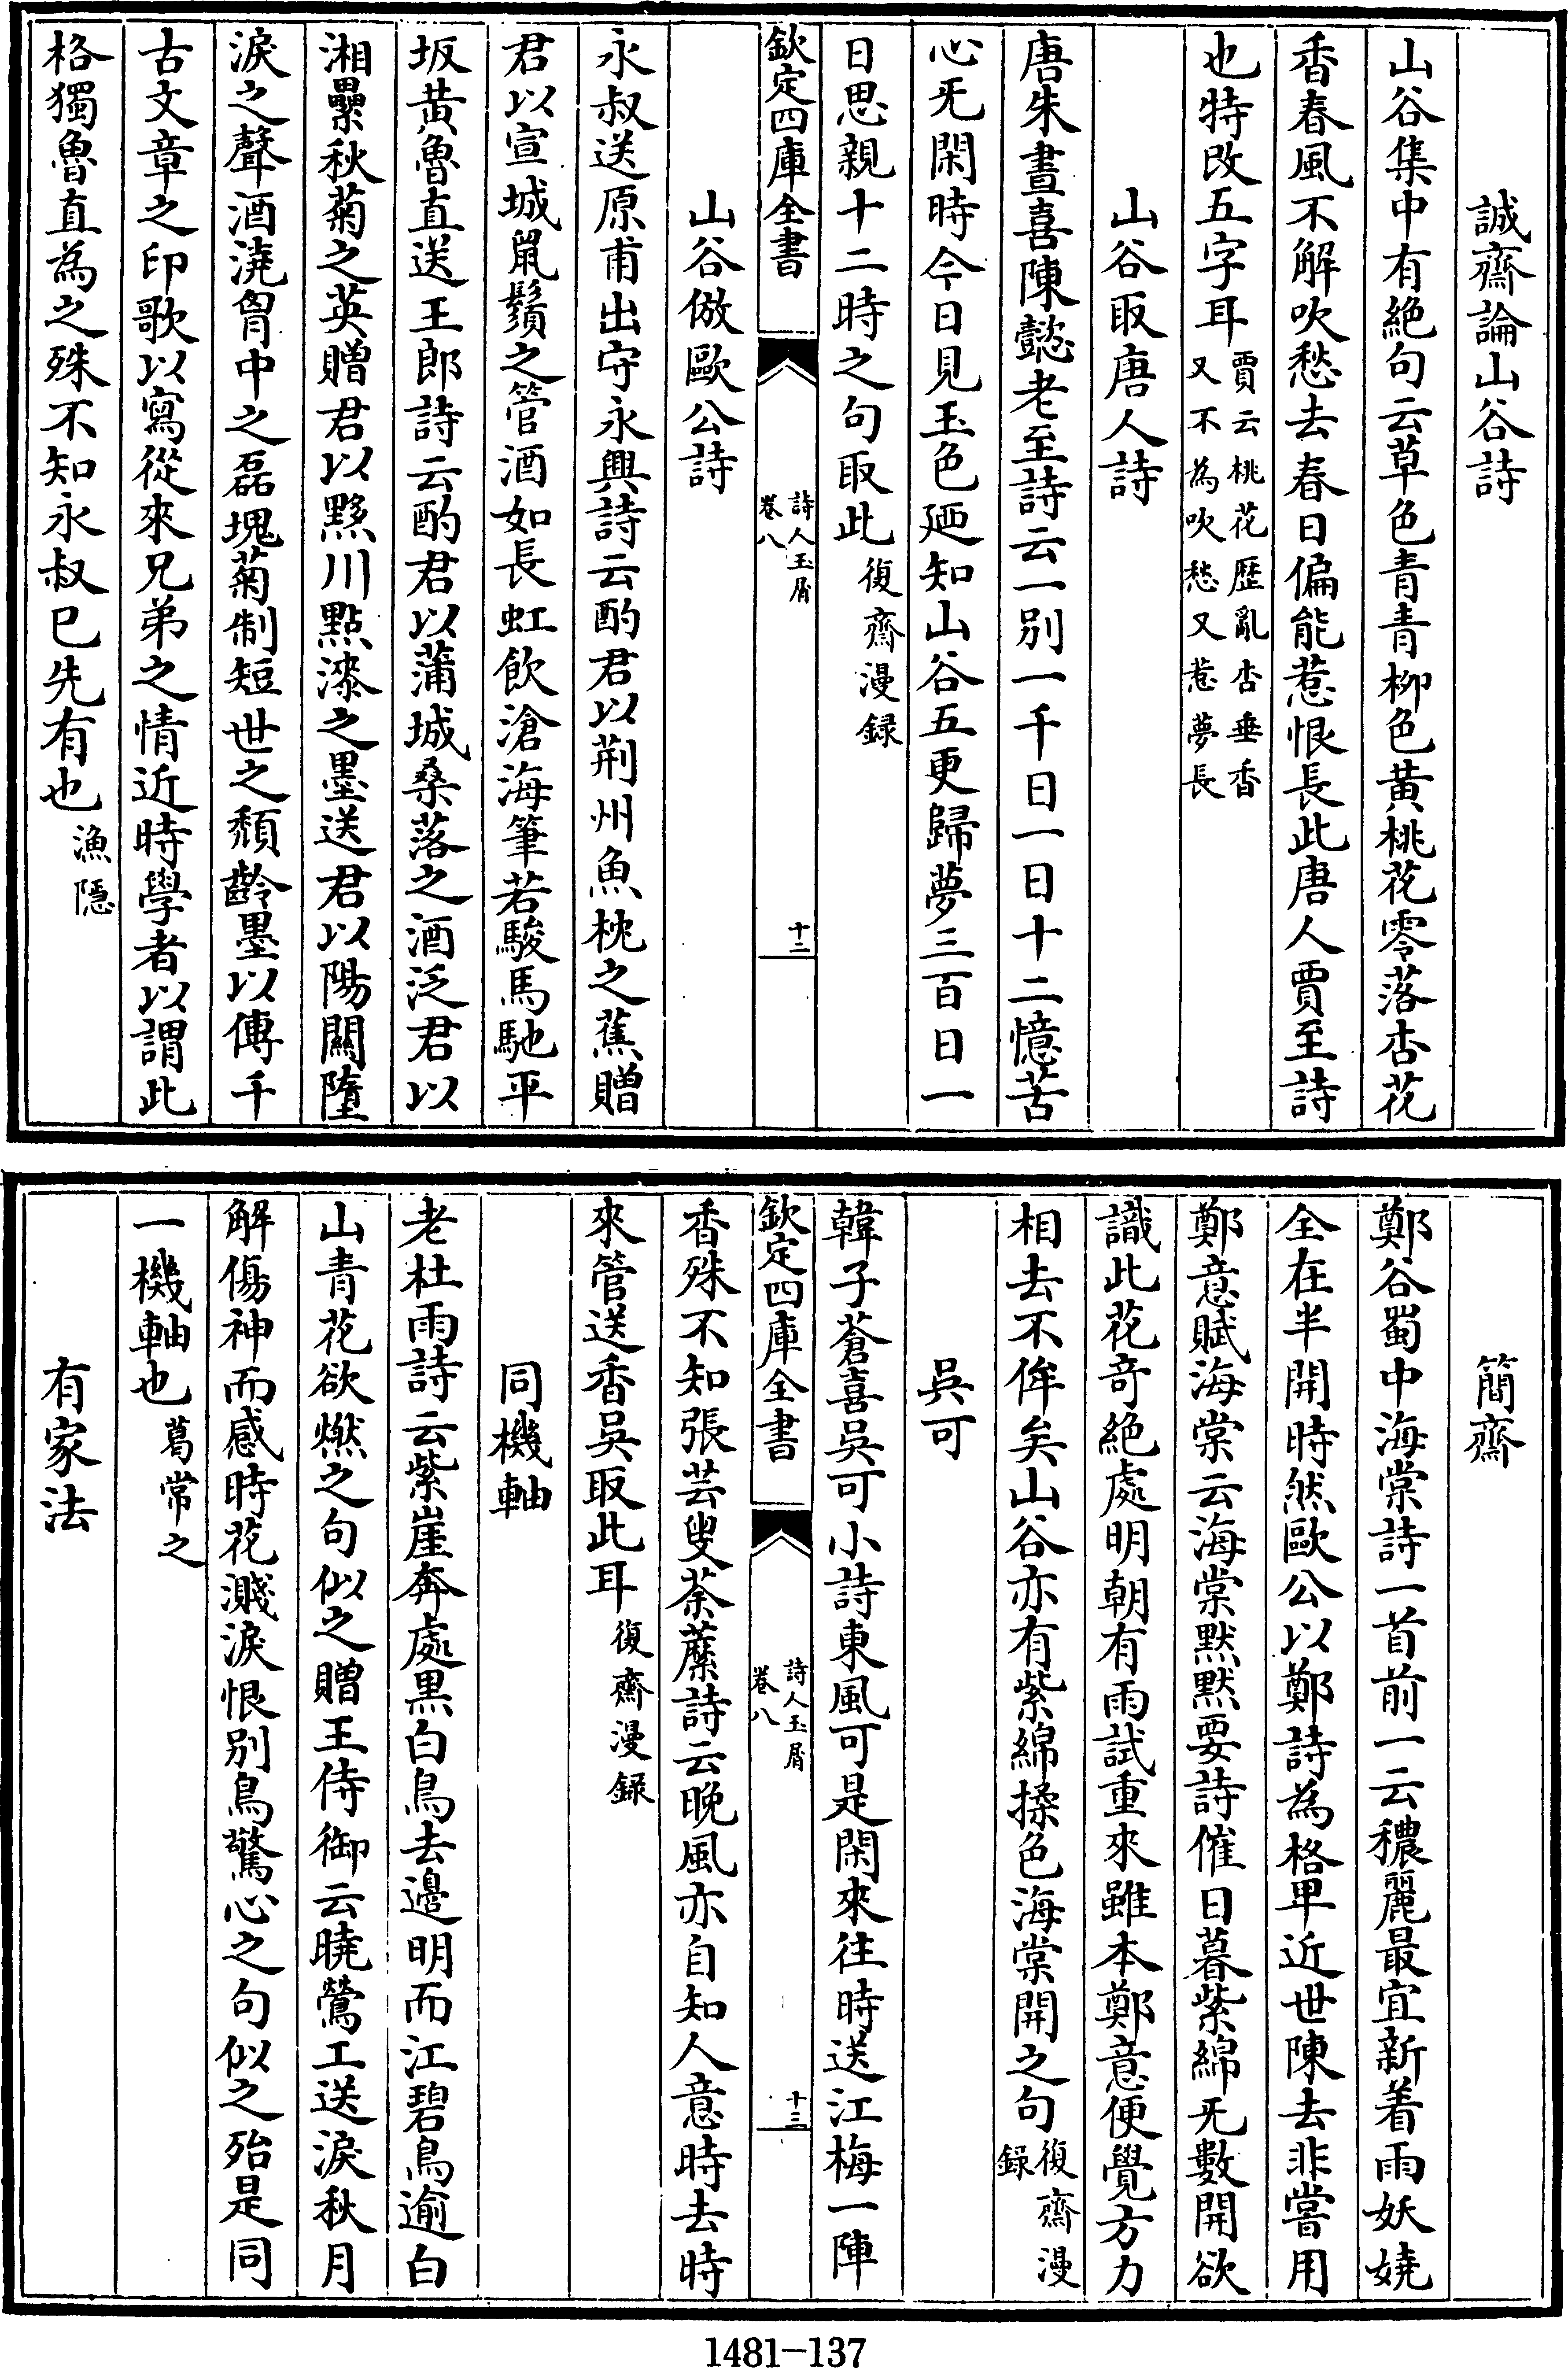 誠齋論山谷詩
山谷集中有絶句云草色青青柳色黄桃花零落杏花
香春風不解吹愁去春日偏能惹恨長此唐人賈至詩
也特改五字耳賈云桃花歷亂杏垂香又不為吹愁又惹夢長
山谷取唐人詩
唐朱晝喜陳懿老至詩云一别一千日一日十二憶苦
心无閑時今日見玉色廼知山谷五更歸夢三百日一
日思親十二時之句取此復齋漫録
欽定四庫全書
詩人玉屑
卷八
十二
山谷倣歐公詩
永叔送原甫出守永興詩云酌君以荆州魚枕之蕉贈
君以宣城䑕鬚之管酒如長虹飲滄海筆若駿馬馳平
坂黄魯直送王郎詩云酌君以蒲城桑落之酒泛君以
湘纍秋菊之英贈君以黟川點漆之墨送君以陽關墮
淚之聲酒澆胷中之磊塊菊制短世之頽齡墨以傳千
古文章之印歌以寫從來兄弟之情近時學者以謂此
格獨魯直為之殊不知永叔已先有也漁隱
簡齋
鄭谷蜀中海棠詩一首前一云穠麗最宜新着雨妖嬈
全在半開時然歐公以鄭詩為格卑近世陳去非嘗用
鄭意賦海棠云海棠黙黙要詩催日暮紫綿无數開欲
識此花竒絶處明朝有雨試重來雖本鄭意便覺方力
相去不侔矣山谷亦有紫綿揉色海棠開之句復齋漫録
吳可
韓子蒼喜吳可小詩東風可是閑來往時送江梅一陣
欽定四庫全書
詩人玉屑
卷八
十三
香殊不知張芸叟荼蘼詩云晚風亦自知人意時去時
來管送香吳取此耳復齋漫録
同機軸
老杜雨詩云紫崖奔處黒白鳥去邉明而江碧鳥逾白
山青花欲燃之句似之贈王侍御云曉鶯工送淚秋月
解傷神而感時花濺淚恨别鳥驚心之句似之殆是同
一機軸也葛常之
有家法
1481-137